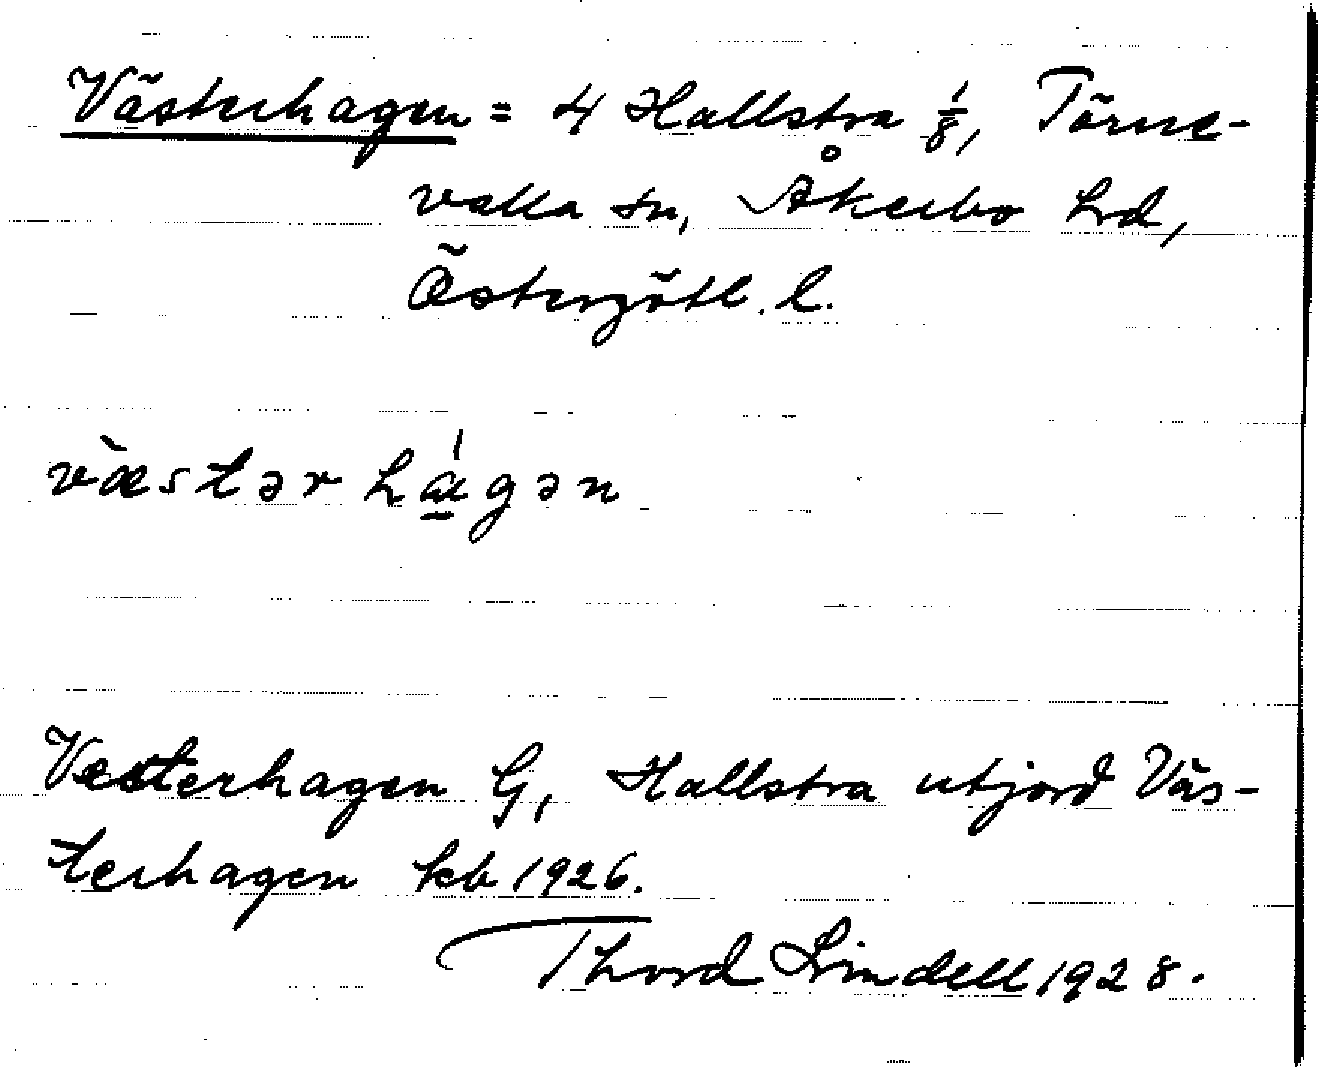 Västerhagen = 4 Hallstra 1/8, Törne-
valla sn, Åkerbo hd,
Östergötl. l.
væ̀stər hágən
Vesterhagen G, Hallstra utjord Väs-
terhagen kb 1926.
Thord Lindell 1928.